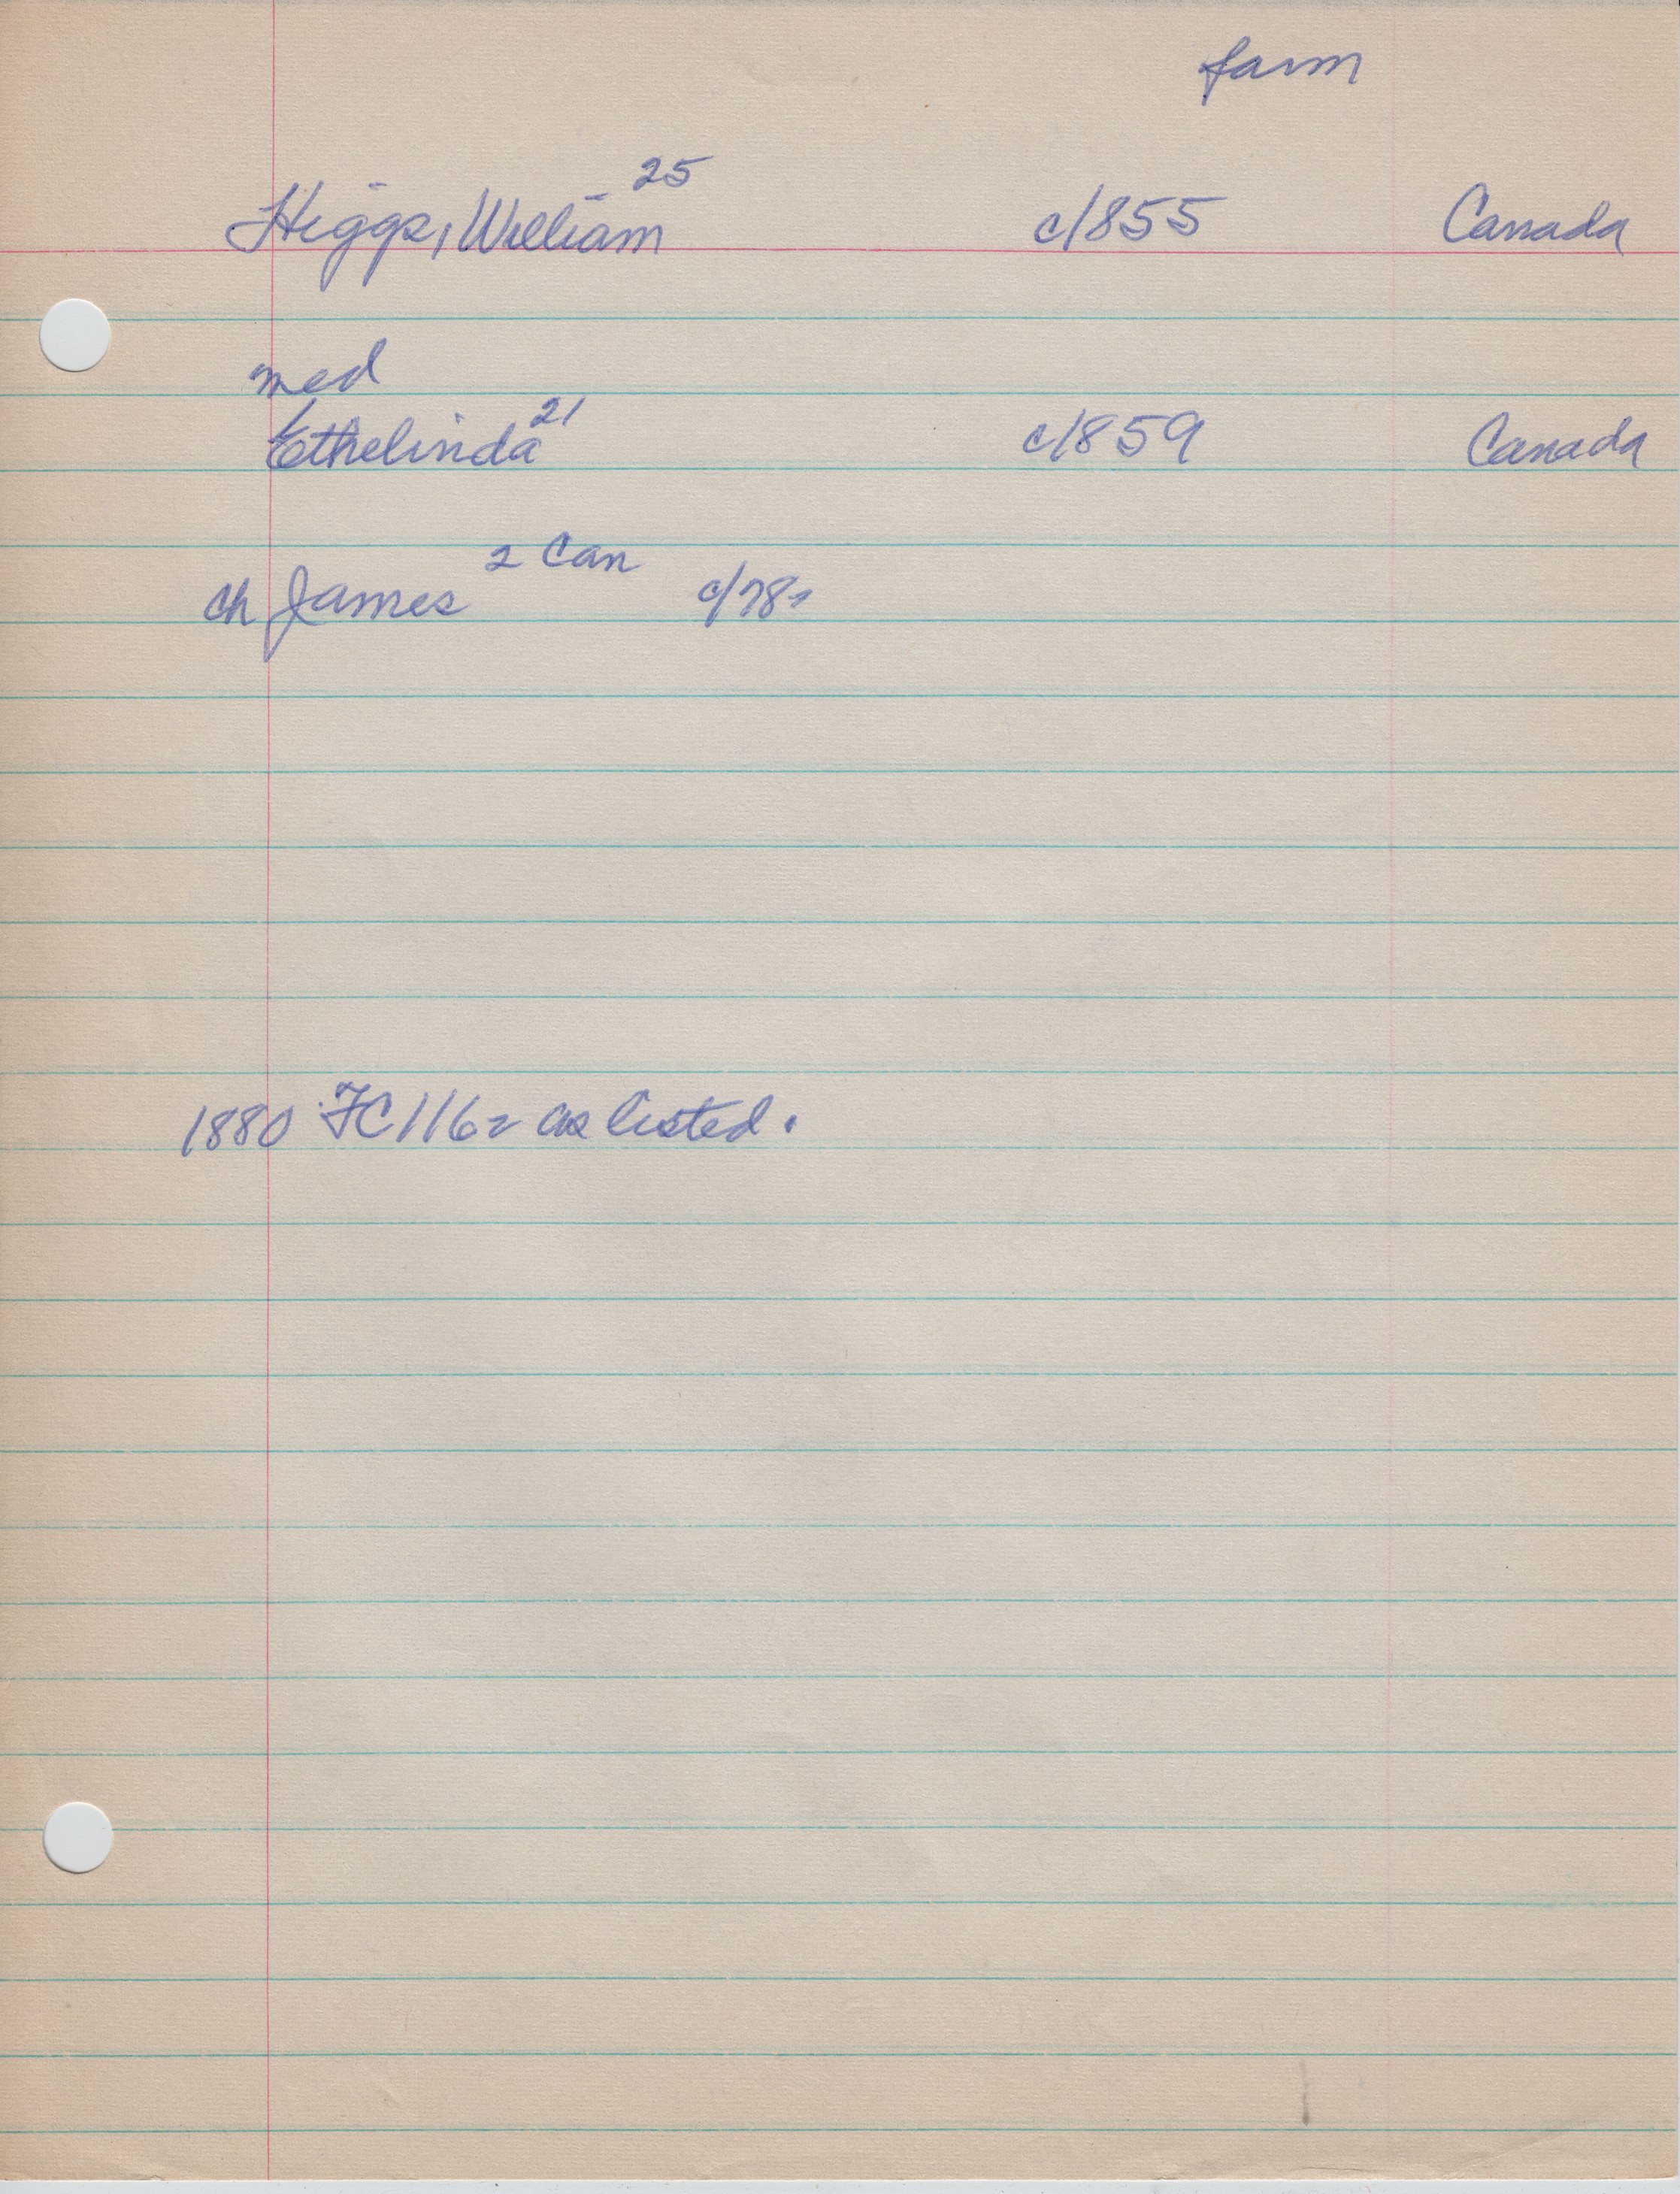 farm
Higgs, William 25 c1855 Canada
med
Ethelinda 21 c1859 Canada
ch James 2 Can c/78
1880 FC 116 as listed.